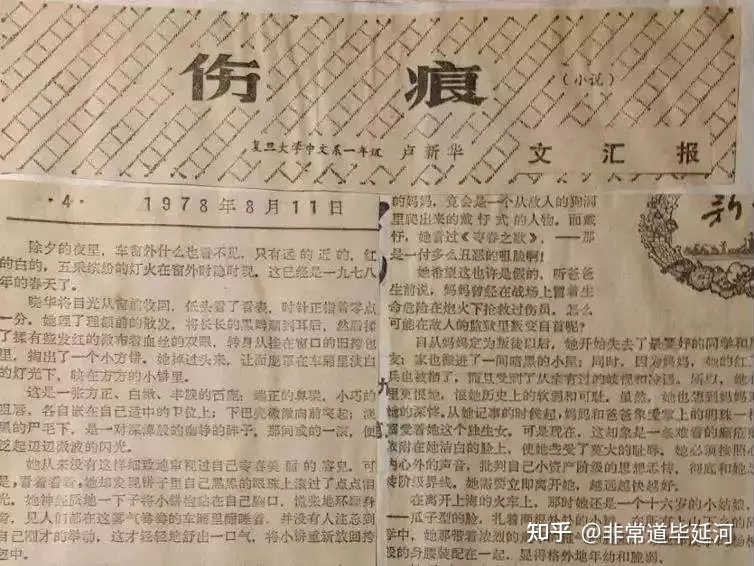 伤 痕
(小说)
复旦大学中文系一年级 卢新华
文 汇 报
·4· 1978年8月11日
除夕的夜里，车窗外什么也看不见，只有远的近的，红
的白的，五采缤纷的灯火在窗外时隐时现。这已经是一九七八
年的春天了。
晓华将目光从窗前收回，低头看了看表，时针正指着零点
一分。她理了理额前的散发，将长长的黑辫顺到耳后，然后揉
了揉有些发红的微布着血丝的双眼，转身从挂在窗口的旧挎包
里，掏出了一个小方镜。她掉过头来，让面庞罩在车厢里淡白
的灯光下，映在方方的小镜里。
这是一张方正、白嫩、丰腴的面庞：端正的鼻梁，小巧的
嘴唇，各自嵌在自己适中的
下巴颏微微向前突起；淡
黑的
下，是一对深潭般的幽静的眸子，那间或的一滚，便
泛起
微波的闪光。
她从来没有这样细致地审视过自己青春美丽的容貌。可
是，看着看着，她却发现镜子里自己黑黑的眼珠上滚过了点点泪
光。她神经质地一下子将小镜抱贴在自己胸口，慌张地环顾身
旁，见人们都在这雾气
的车厢里酣睡着，并没有人注意到
自己刚才的举动，这才轻轻地舒出一口气，将小镜重新放回挎
包中。
新
的妈妈，竟会是一个从敌人的狗洞
里爬出来的戴愉式的人物。而戴
愉，她看过《青春之歌》，——那
是一付多么丑恶的嘴脸啊！
她希望这也许是假的，听爸爸
生前说，妈妈曾经在战场上冒着生
命危险在炮火下抢救过伤员，怎么
可能在敌人的监狱里叛变自首呢？
自从妈妈定为叛徒以后，她开始失去了最要好的同学和朋
友；家也搬进了一间暗黑的小屋；同时，因为妈妈，她的红卫
兵也被撤了，而且受到了从未有过的歧视和冷遇。所以，她心
里更恨她，恨她历史上的软弱和可耻。虽然，她也想到妈妈对
她的深情。从她记事的时候起，妈妈和爸爸象爱掌上的明珠一
溺爱着她这个独生女。可是现在，这却象是一条难看的癞疮疤
依附在她洁白的脸上，使她蒙受了莫大的耻辱。她必须按照心
内心外的声音，批判自己小资产阶级的思想感情，彻底和她划
阶级界线。她需要立即离开她，越远越快越好。
在离开上海的火车上，那时她还是一个十六岁的小姑娘，
——瓜子型的脸，扎着
中，她那带着浓烈的
的身腰装配在一起，显得格外地年幼和脆弱。
知乎 @非常道毕延河